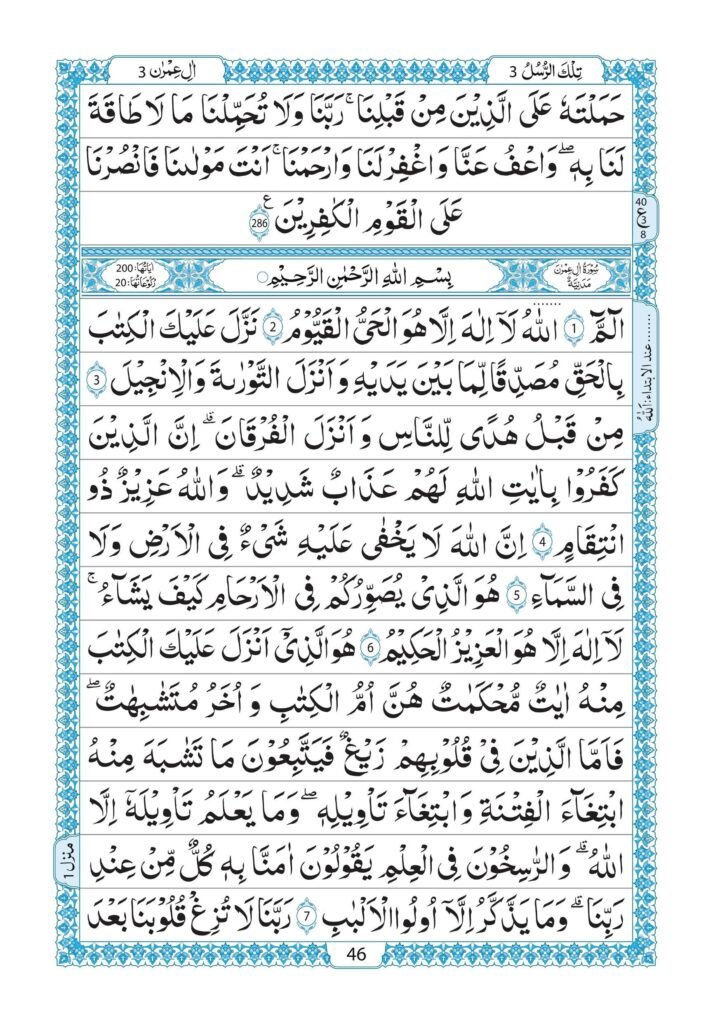 تِلْكَ الرُّسُلُ 3
اٰلِ عِمْرٰن 3
حَمَلْتَهٗ عَلَى الَّذِيْنَ مِنْ قَبْلِنَا ۚ رَبَّنَا وَلَا تُحَمِّلْنَا مَا لَا طَاقَةَ
لَنَا بِهٖ ۖ وَاعْفُ عَنَّا وَاغْفِرْ لَنَا وَارْحَمْنَا ۚ اَنْتَ مَوْلٰىنَا فَانْصُرْنَا
عَلَى الْقَوْمِ الْكٰفِرِيْنَ ع 286
40
ع
3
8
سُوْرَةُ اٰلِ عِمْرٰنَ مَدَنِيَّةٌ
بِسْمِ اللّٰهِ الرَّحْمٰنِ الرَّحِيْمِ ○
اٰيَاتُهَا: 200
رُكُوْعَاتُهَا: 20
الٓمَّٓ 1 اللّٰهُ لَاۤ اِلٰهَ اِلَّا هُوَ الْحَىُّ الْقَيُّوْمُ 2 نَزَّلَ عَلَيْكَ الْكِتٰبَ
....... عند الابتداء: اَللّٰهُ
بِالْحَقِّ مُصَدِّقًا لِّمَا بَيْنَ يَدَيْهِ وَاَنْزَلَ التَّوْرٰىةَ وَالْاِنْجِيْلَ 3
مِنْ قَبْلُ هُدًى لِّلنَّاسِ وَاَنْزَلَ الْفُرْقَانَ ۗ اِنَّ الَّذِيْنَ
كَفَرُوْا بِاٰيٰتِ اللّٰهِ لَهُمْ عَذَابٌ شَدِيْدٌ ۗ وَاللّٰهُ عَزِيْزٌ ذُو
انْتِقَامٍ 4 اِنَّ اللّٰهَ لَا يَخْفٰى عَلَيْهِ شَىْءٌ فِى الْاَرْضِ وَلَا
فِى السَّمَآءِ 5 هُوَ الَّذِىْ يُصَوِّرُكُمْ فِى الْاَرْحَامِ كَيْفَ يَشَآءُ ۚ
لَاۤ اِلٰهَ اِلَّا هُوَ الْعَزِيْزُ الْحَكِيْمُ 6 هُوَ الَّذِىْۤ اَنْزَلَ عَلَيْكَ الْكِتٰبَ
مِنْهُ اٰيٰتٌ مُّحْكَمٰتٌ هُنَّ اُمُّ الْكِتٰبِ وَاُخَرُ مُتَشٰبِهٰتٌ ۖ
فَاَمَّا الَّذِيْنَ فِىْ قُلُوْبِهِمْ زَيْغٌ فَيَتَّبِعُوْنَ مَا تَشٰبَهَ مِنْهُ
ابْتِغَآءَ الْفِتْنَةِ وَابْتِغَآءَ تَاْوِيْلِهٖ ۖ وَمَا يَعْلَمُ تَاْوِيْلَهٗۤ اِلَّا
اللّٰهُ ۗ وَالرّٰسِخُوْنَ فِى الْعِلْمِ يَقُوْلُوْنَ اٰمَنَّا بِهٖ كُلٌّ مِّنْ عِنْدِ
منزل 1
رَبِّنَا ۗ وَمَا يَذَّكَّرُ اِلَّاۤ اُولُوا الْاَلْبٰبِ 7 رَبَّنَا لَا تُزِغْ قُلُوْبَنَا بَعْدَ
46